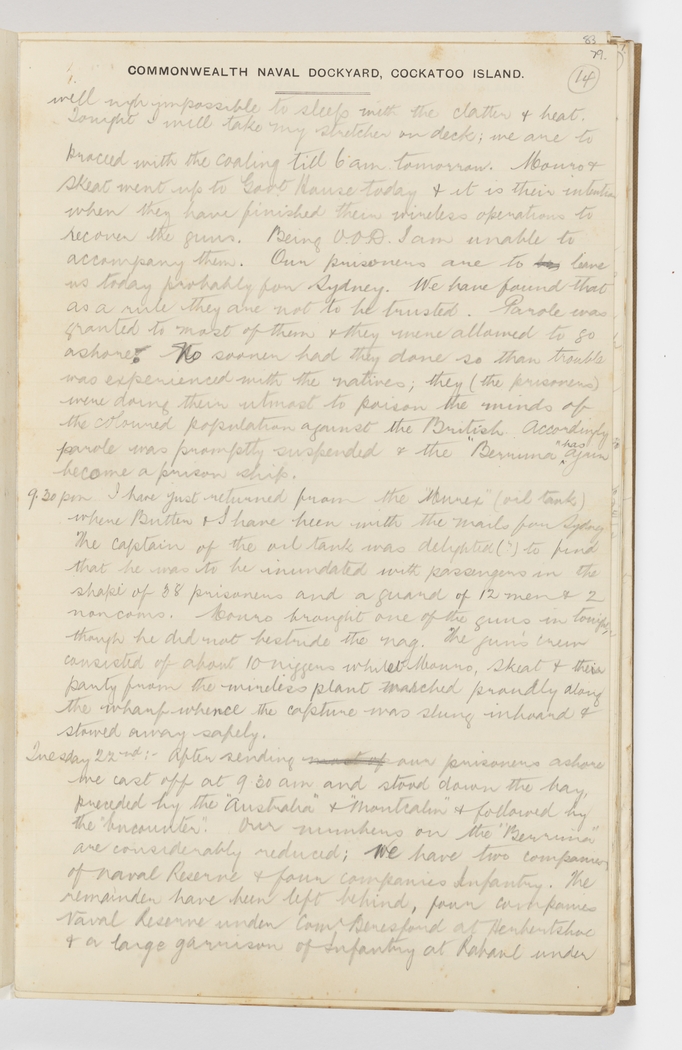 83
79.
14
1.
COMMONWEALTH NAVAL DOCKYARD, COCKATOO ISLAND.
well nigh impossible to sleep with the clatter & heat.
Tonight I will take my stretcher on deck; we are to
proceed with the coaling till 6 am tomorrow. Mouro &
Skeat went up to Govt House today & it is their intention
when they have finished their wireless operations to
recover the guns. Being O.O.D. I am unable to
accompany them. Our prisoners are to be leave
us today probably for Sydney. We have found that
as a rule they are not to be trusted. Parole was
granted to most of them & they were allowed to go
ashore. No sooner had they done so than trouble
was experienced with the natives; they (the prisoners)
were doing their utmost to poison the minds of
the coloured population against the British. Accordingly
parole was promptly suspended & the "Berrima" has again
become a prison ship.
9.30 pm I have just returned from the "Murex" (oil tank)
where Butter & I have been with the mails for Sydney
The captain of the oil tank was delighted (?) to find
that he was to be inundated with passengers in the
shape of 38 prisoners and a guard of 12 men & 2
noncoms. Mouro brought one of the guns in tonight
though he did not bestride the nag. The gun's crew
consisted of about 10 niggers whilst Mouro, Skeat & their
party from the wireless plant marched proudly along
the wharf whence the capture was slung inboard &
stowed away safely.
Tuesday 22nd:- After sending most of our prisoners ashore
we cast off at 9 30 am and stood down the bay,
preceded by the "Australia" & "Montcalm" & followed by
the "Encounter". Our numbers on the "Berrima"
are considerably reduced; We have two companies
of Naval Reserve & four companies Infantry. The
remainder have been left behind, four companies
Naval Reserve under Comr Beresford at Herbertshoe
& a large garrison of Infantry at Rabaul under